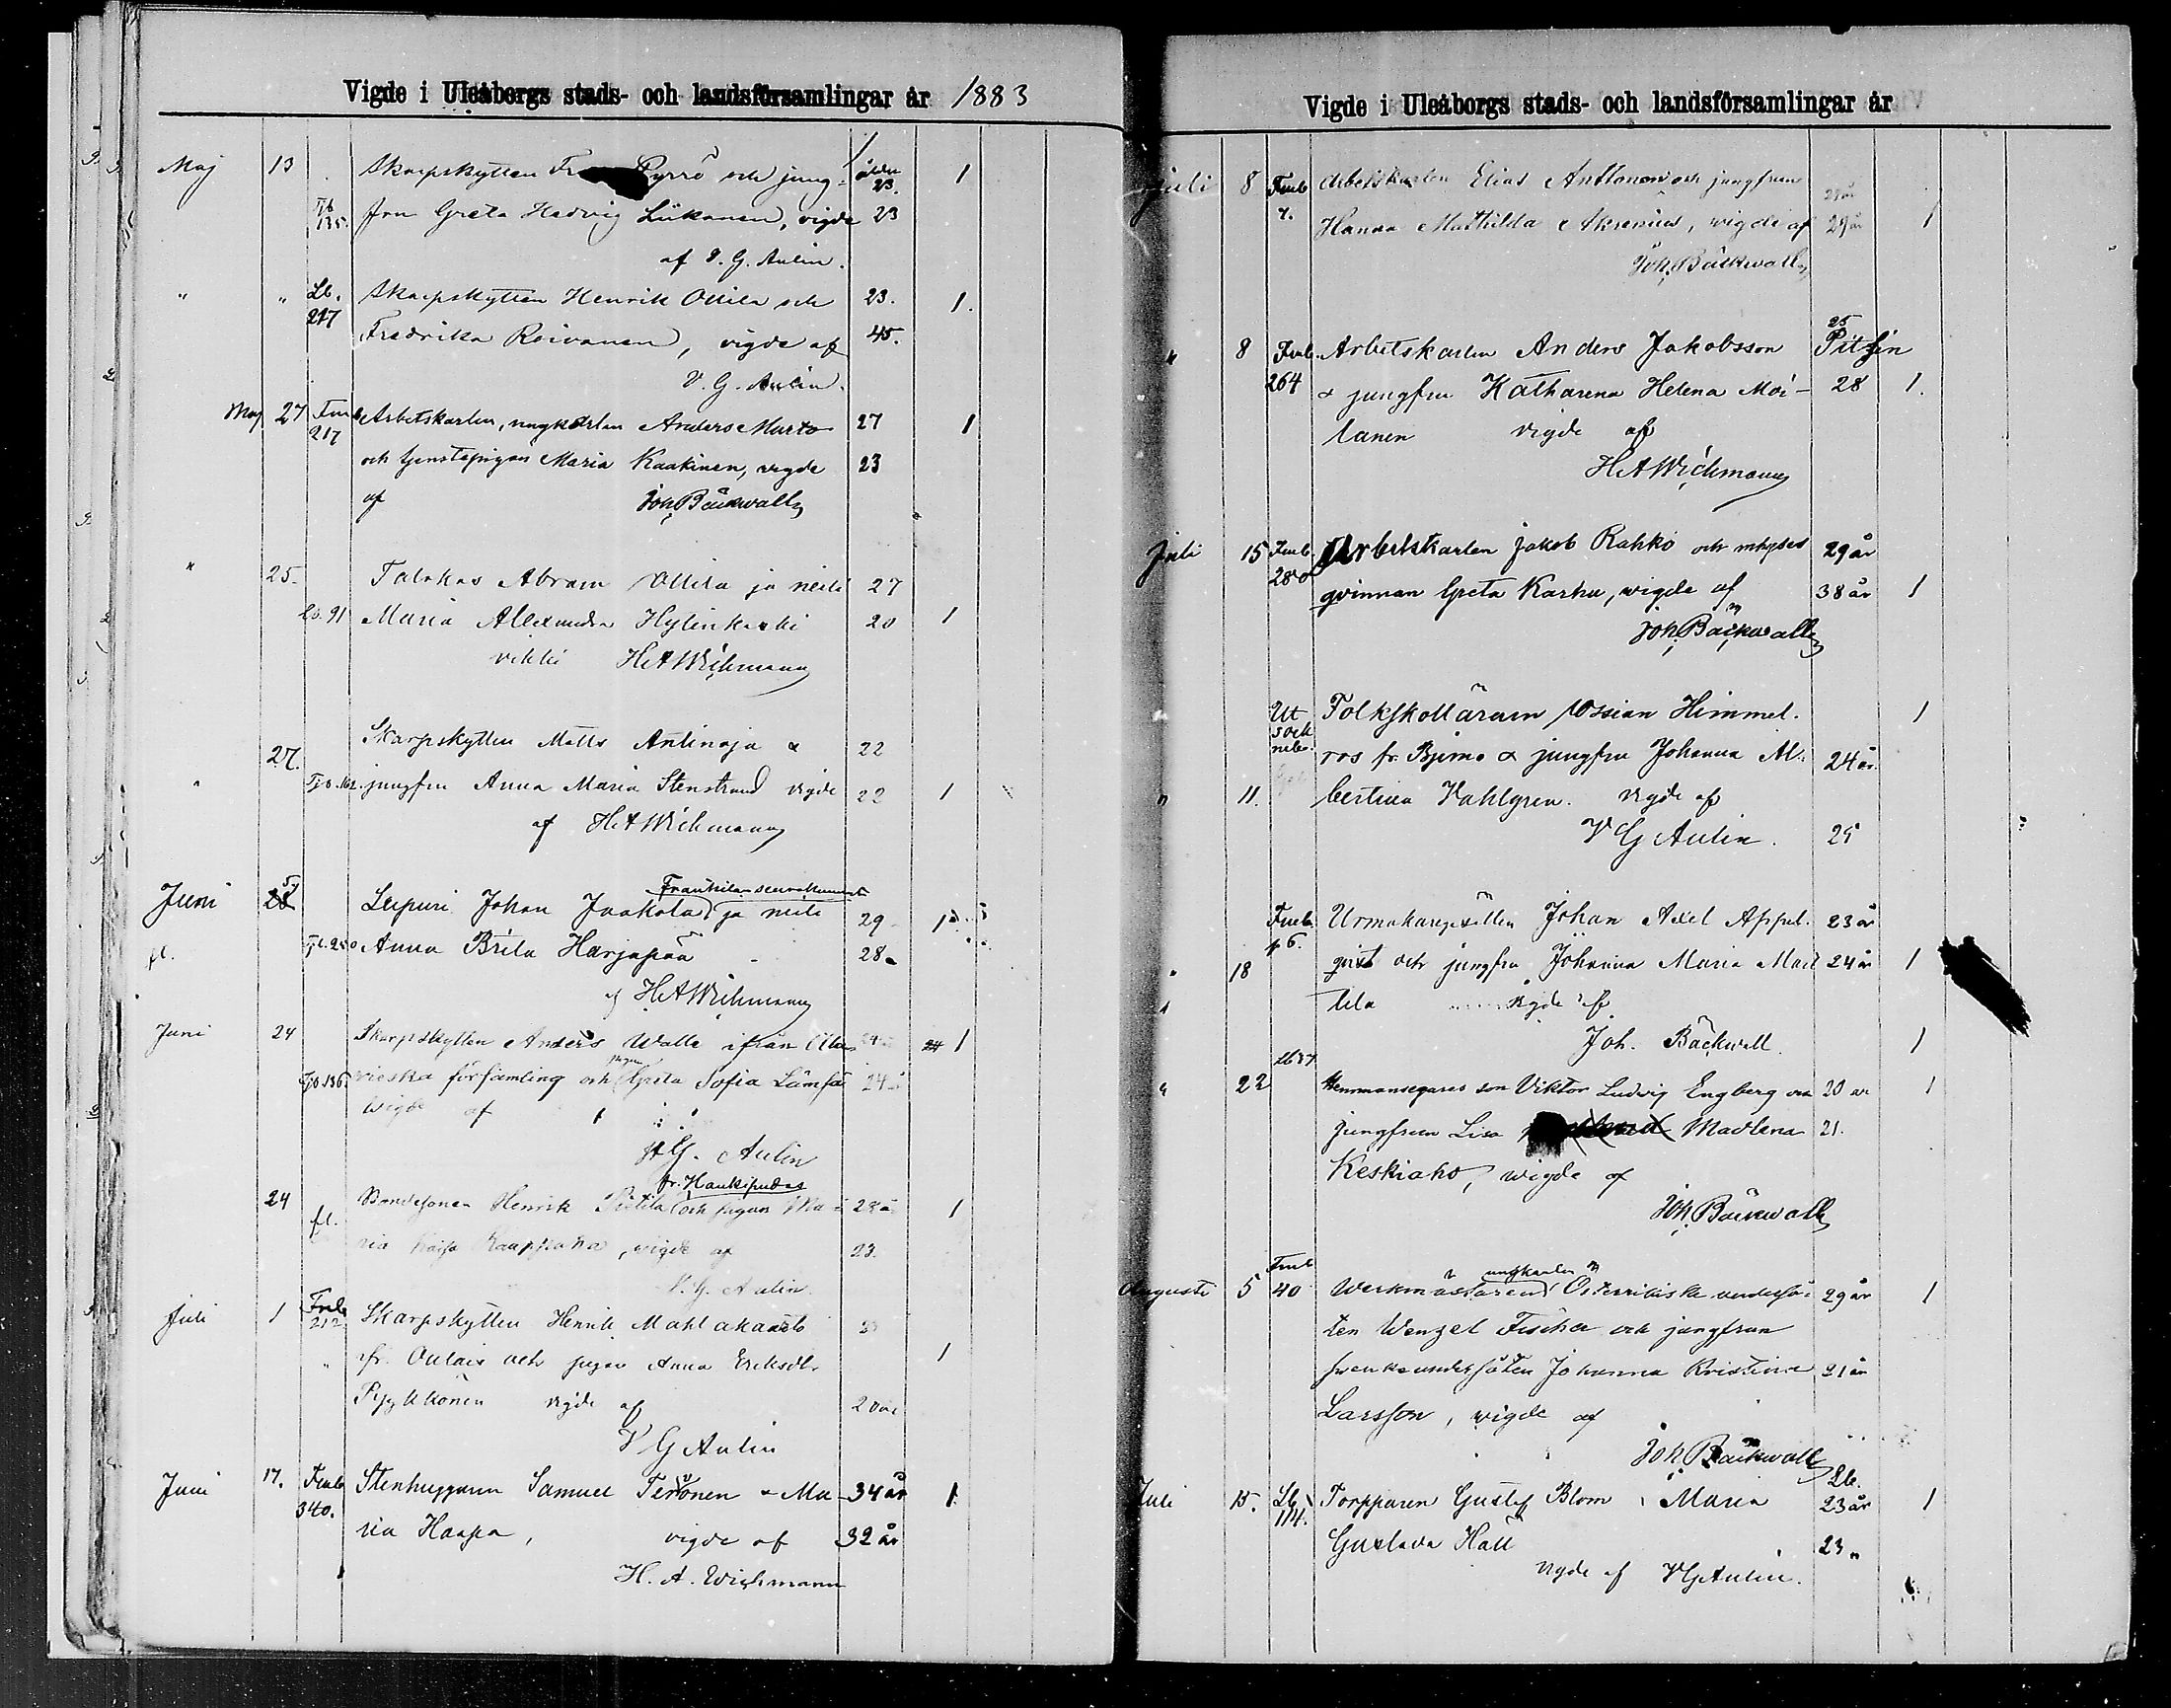 Vigde i Uleåborgs stads- och landsförsamlingar år 1883
Maj 13 Skarpskytten Pyrrö och jung- ålder 23. 1
Tjb 135. frun Greta Hedvig Liikanen, vigde 23
af V. G. Aulin.
" " Lb. 217 Skarpskytten Henrik Ollila och 23. 1.
Fredrika Roivanen, vigde af 45.
V. G. Aulin.
Maj 27 Fmb 217 Arbetskarlen, ungkarlen Anders Murto 27 1
och tjenstepigan Maria Kaakinen, vigde 23
af Joh. Bäckwall
" 25. Talokas Abram Ollila ja neiti 27
Lb. 91 Maria Alexandra Hylinkoski 20 1
vihki H A Wichmann
27. Skarpskytten Matts Antinoja & 22
" Tjb. 162. jungfru Anna Maria Stenstrand vigde 22 1
af H A Wichmann
Frantsilan seurakunnasta
Juni Lupuri Johan Jaakola ja neiti 29 1
fl. Tjb. 250 Anna Brita Harjapää 28
af H A Wichmann
Juni 24 Skarpskytten Anders Walle ifrån Ala- 24 1
Tjb 136. vieska församling och pigan Greta Sofia Lämsä 24
wigde af
V G. Aulin
fr. Haukipudas
24 fl. Bondesonen Henrik Pietilä och pigan Ma- 28 1
ria Kaisa, vigde af 23.
V. G. Aulin
Juli 1 Fmb 212 Skarpskytten Henrik Mahlakaarto
" fr. Oulais och pigan Anna Eriksdr. 1
Pyykkönen vigde af 20år
V G Aulin
Juni 17. Fmb 340. Stenhuggaren Samuel Tervonen & Ma- 34 år 1
ria Haapa, vigde af 32 år
H. A. Wichmann
Vigde i Uleåborgs stads- och landsförsamlingar år
Juli 8 Fmb Arbetskarlen Elias Anttonen och jungfrun
Hanna Mathilda Akrenius, vigde af 29 år 1
Joh. Bäckwall
" 8 Fmb. 264 Arbetskarlen Anders Jakobsson Pitsin 25
& jungfru Katharina Helena Moi- 28 1.
lanen vigde af
H A Wichmann
Juli 15 Fmb 280 Arbetskarlen Jakob Rahko och inhyses 29 år
qvinnan Greta Karhu, vigde af 38 år 1
Joh. Bäckwall
Ut sock nebo. Folkskolläraren Ossian Himmel- 1
ros fr. Bjerno & jungfru Johanna Al- 24 år
" 11. bertina Vahlgren. vigde af
V G Aulin. 25
Fmb. Urmakaregesällen Johan Axel Appel- 23 år
" 18 qvist och jungfru Johanna Maria Mart 24 år 1
tila vigde af
Joh. Bäckwall. 1
" 22 Hemmansegares son Viktor Ludvig Engberg och 20 år 1
jungfrun Lisa Madlena 21.
Keskiaho, wigde af
Joh. Bäckwall
Augusti 5 Fmb 40 Werkmästaren ungkarlen Österrikiske underså- 29 år 1
ten Wenzel Fischer och jungfrun
svenska undersåten Johanna Kristina 21 år
Larsson, wigde af
Joh Bäckwall
Juli 15. Lb. 114. Torpparen Gustaf Blom, Maria Lb. 23 år 1
Gustava Häll 23 "
vigde af V G Aulin.